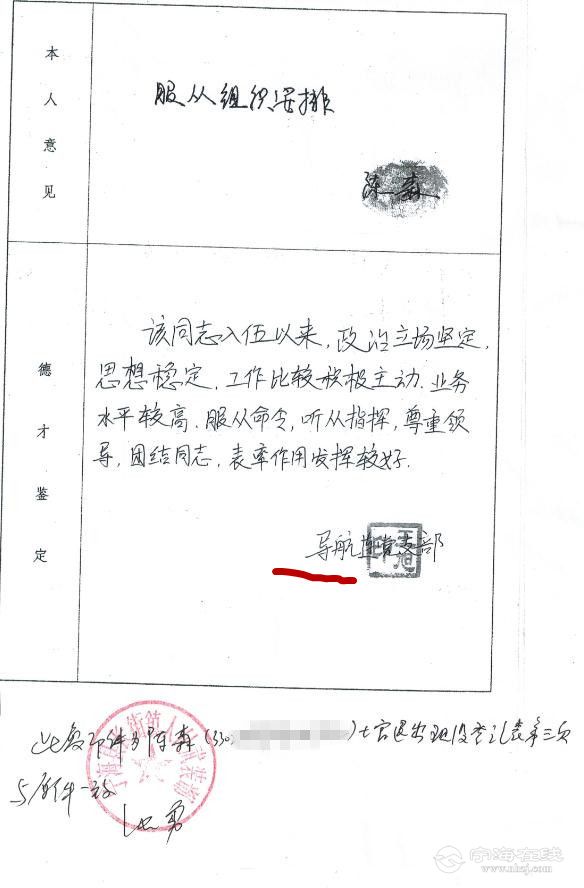 本人意见
服从组织安排
陈森
德才鉴定
该同志入伍以来，政治立场坚定，
思想稳定，工作比较积极主动，业务
水平较高，服从命令，听从指挥，尊重领
导，团结同志，表率作用发挥较好．
导航连党支部
此复印件为陈森（330 ）士官退出现役登记表第三页
与原件一致
宁海在线
www.nhzj.com